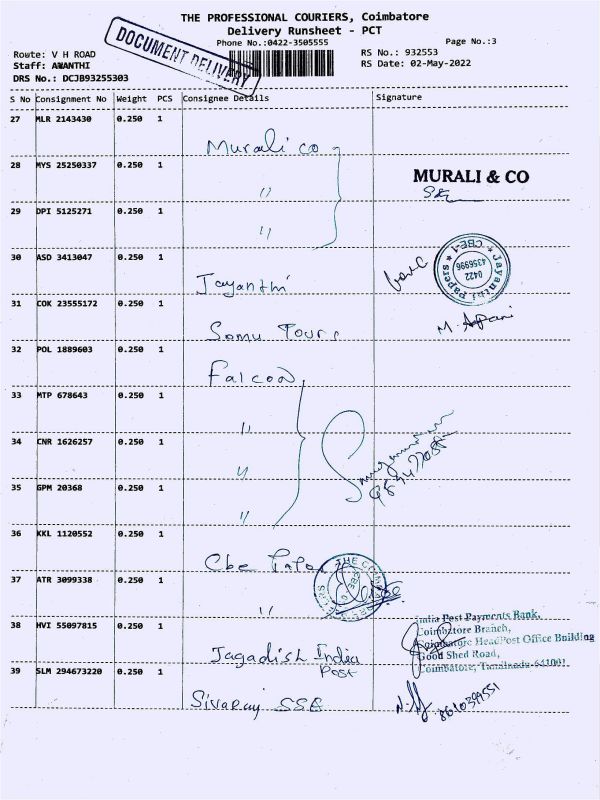 THE PROFESSIONAL COURIERS, Coimbatore
Delivery Runsheet - PCT
Phone No.:0422-3505555
Page No.:3
DOCUMENT DELIVERY
Route: V H ROAD
RS No.: 932553
Staff: AWANTHI
RS Date: 02-May-2022
DRS No.: DCJB93255303
S No Consignment No Weight PCS Consignee Details Signature
27 MLR 2143430 0.250 1
Murali co
28 MYS 25250337 0.250 1
MURALI & CO
"
29 DPI 5125271 0.250 1
"
30 ASD 3413047 0.250 1
Jayanthi
Jayanthi Papers
CBE-1
0422
4356996
31 COK 23555172 0.250 1
Somu Tours
32 POL 1889603 0.250 1
Falcon
33 MTP 678643 0.250 1
"
34 CNR 1626257 0.250 1
"
35 GPM 20368 0.250 1
"
36 KKL 1120552 0.250 1
Cbe
THE
37 ATR 3099338 0.250 1
"
38 HVI 55097815 0.250 1
India Post Payments Bank,
Coimbatore Branch,
Coimbatore HeadPost Office Building
Good Shed Road,
Coimbatore, Tamilnadu-641001
Jagadish India
Post
39 SLM 294673220 0.250 1
Sivaraj SSE